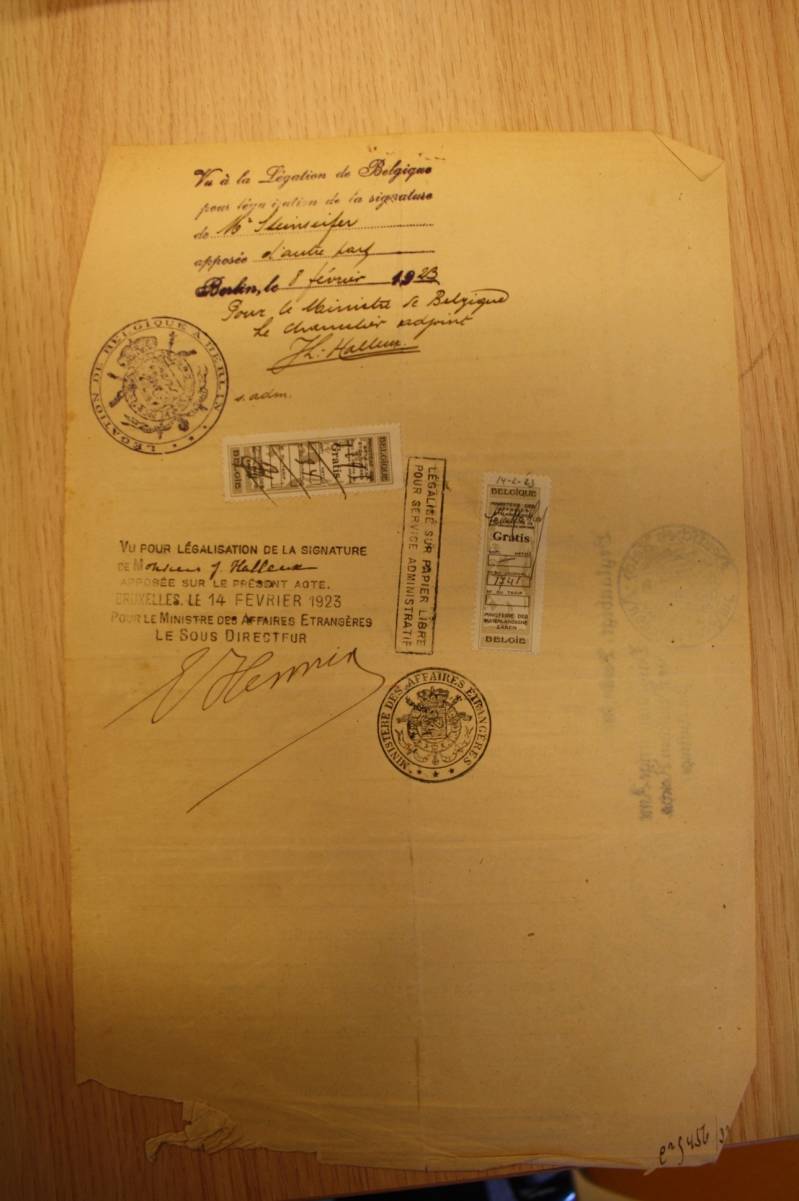 Vu à la Légation de Belgique
pour légalisation de la signature
de Mr Steinseifer
apposée d'autre part
Berlin, le 8 février 1923
Pour le Ministre de Belgique
Le chancelier adjoint
J. Halleux
LÉGATION DE BELGIQUE A BERLIN
s. adm.
BELGIQUE
Gratis
BELGIE
LÉGALISÉ SUR PAPIER LIBRE
POUR SERVICE ADMINISTRATIF
14-2-23
BELGIQUE
Gratis
1741
MINISTERIE DER
BUITENLANDSCHE
ZAKEN
BELGIE
VU POUR LÉGALISATION DE LA SIGNATURE
DE Monsieur J. Halleux
APPOSÉE SUR LE PRÉSENT ACTE.
BRUXELLES, LE 14 FEVRIER 1923
POUR LE MINISTRE DES AFFAIRES ETRANGÈRES
LE SOUS DIRECTEUR
MINISTÈRE DES AFFAIRES ETRANGÈRES